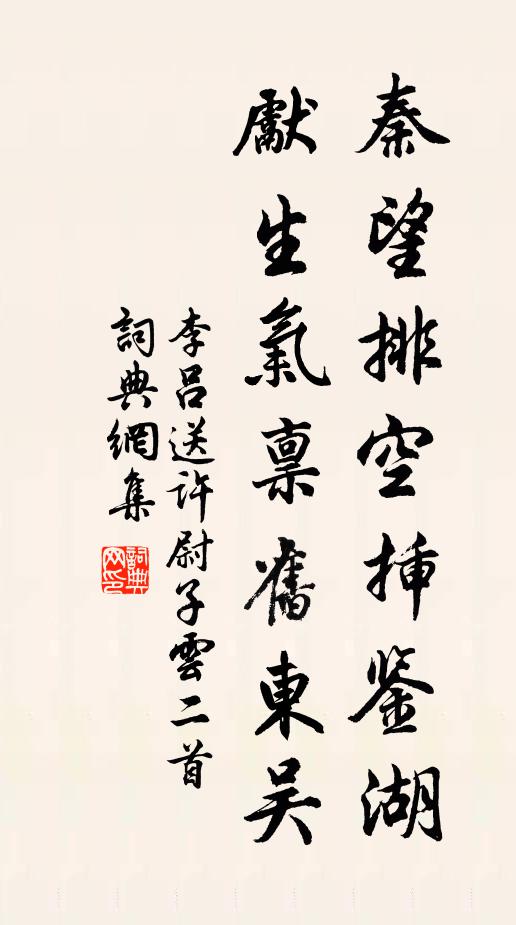 秦望排空挿鉴湖
獻生氣禀舊東吴
李吕送許尉子雲二首
詞典網集
詞典网印